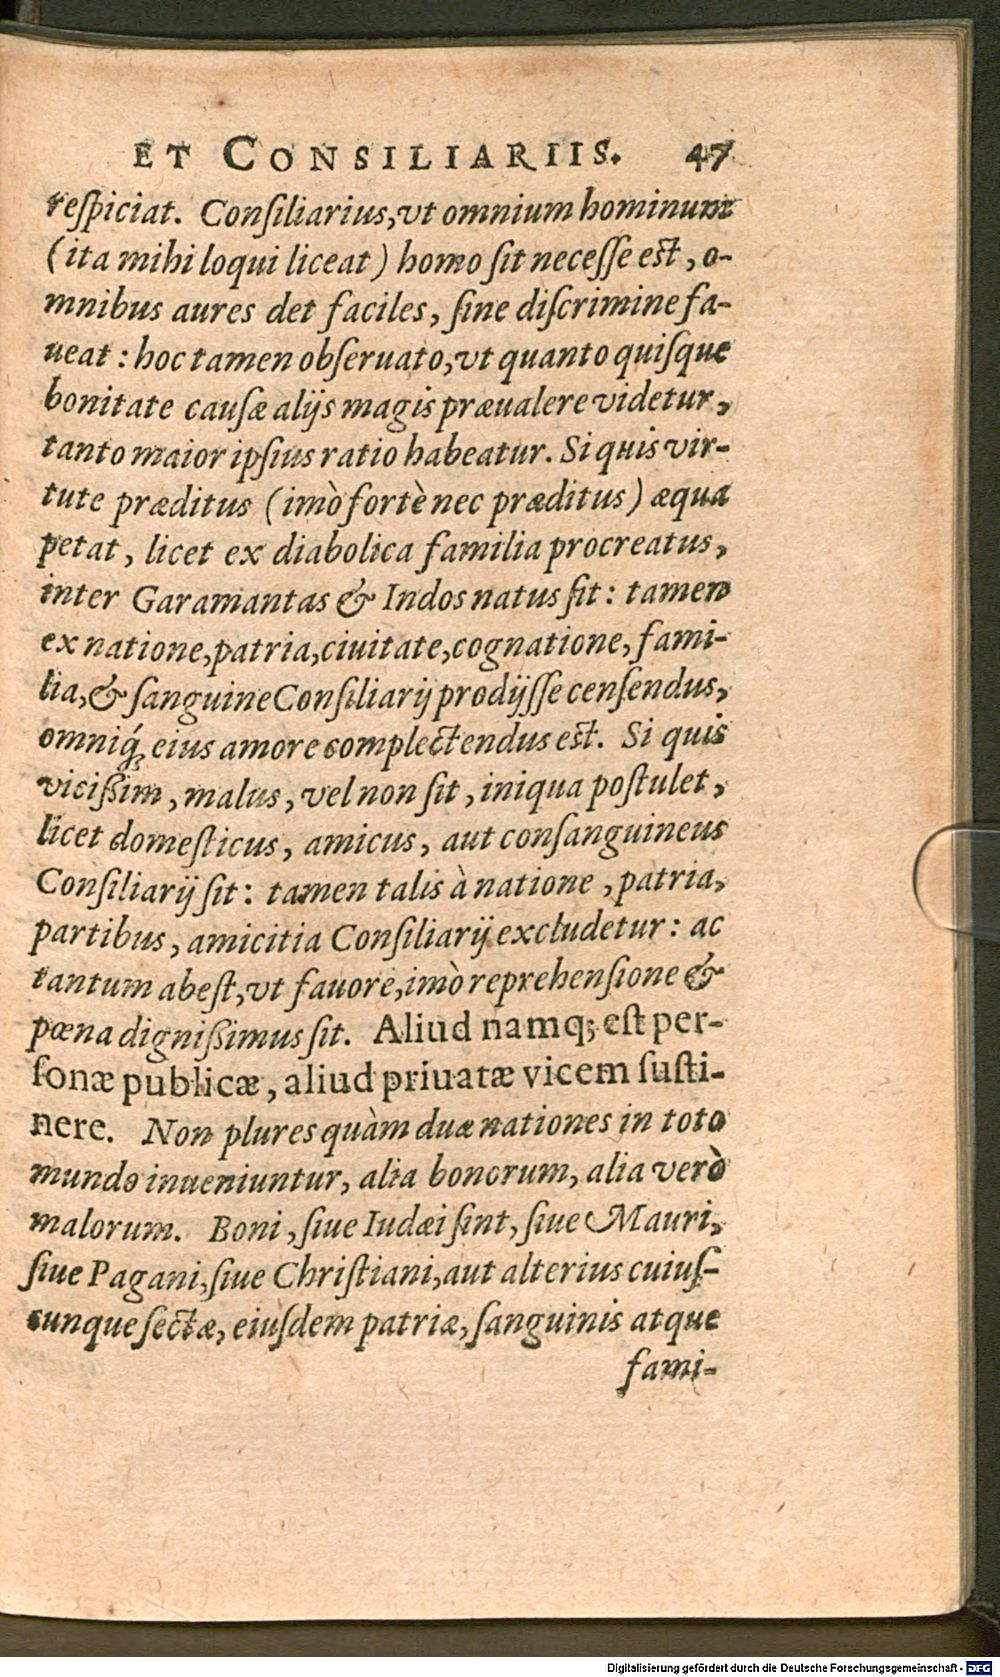 ET CONSILIARIIS. 47
reſpiciat. Conſiliarius, vt omnium hominum
(ita mihi loqui liceat) homo ſit neceſſe eſt, o-
mnibus aures det faciles, ſine diſcrimine fa-
ueat: hoc tamen obſeruato, vt quanto quiſque
bonitate cauſæ alijs magis præualere videtur,
tanto maior ipſius ratio habeatur. Si quis vir-
tute præditus (imò fortè nec præditus) æqua
petat, licet ex diabolica familia procreatus,
inter Garamantas & Indos natus ſit: tamen
ex natione, patria, ciuitate, cognatione, fami-
lia, & ſanguine Conſiliarij prodijſſe cenſendus,
omniq́; eius amore complectendus eſt. Si quis
viciſſim, malus, vel non ſit, iniqua poſtulet,
licet domeſticus, amicus, aut conſanguineus
Conſiliarij ſit: tamen talis à natione, patria,
partibus, amicitia Conſiliarij excludetur: ac
tantum abeſt, vt fauore, imò reprehenſione &
pœna digniſſimus ſit. Aliud namq; eſt per-
ſonæ publicæ, aliud priuatæ vicem ſuſti-
nere. Non plures quàm duæ nationes in toto
mundo inueniuntur, alia bonorum, alia verò
malorum. Boni, ſiue Iudæi ſint, ſiue Mauri,
ſiue Pagani, ſiue Chriſtiani, aut alterius cuiuſ-
cunque ſectæ, eiuſdem patriæ, ſanguinis atque
fami-
Digitalisierung gefördert durch die Deutsche Forschungsgemeinschaft - DFG